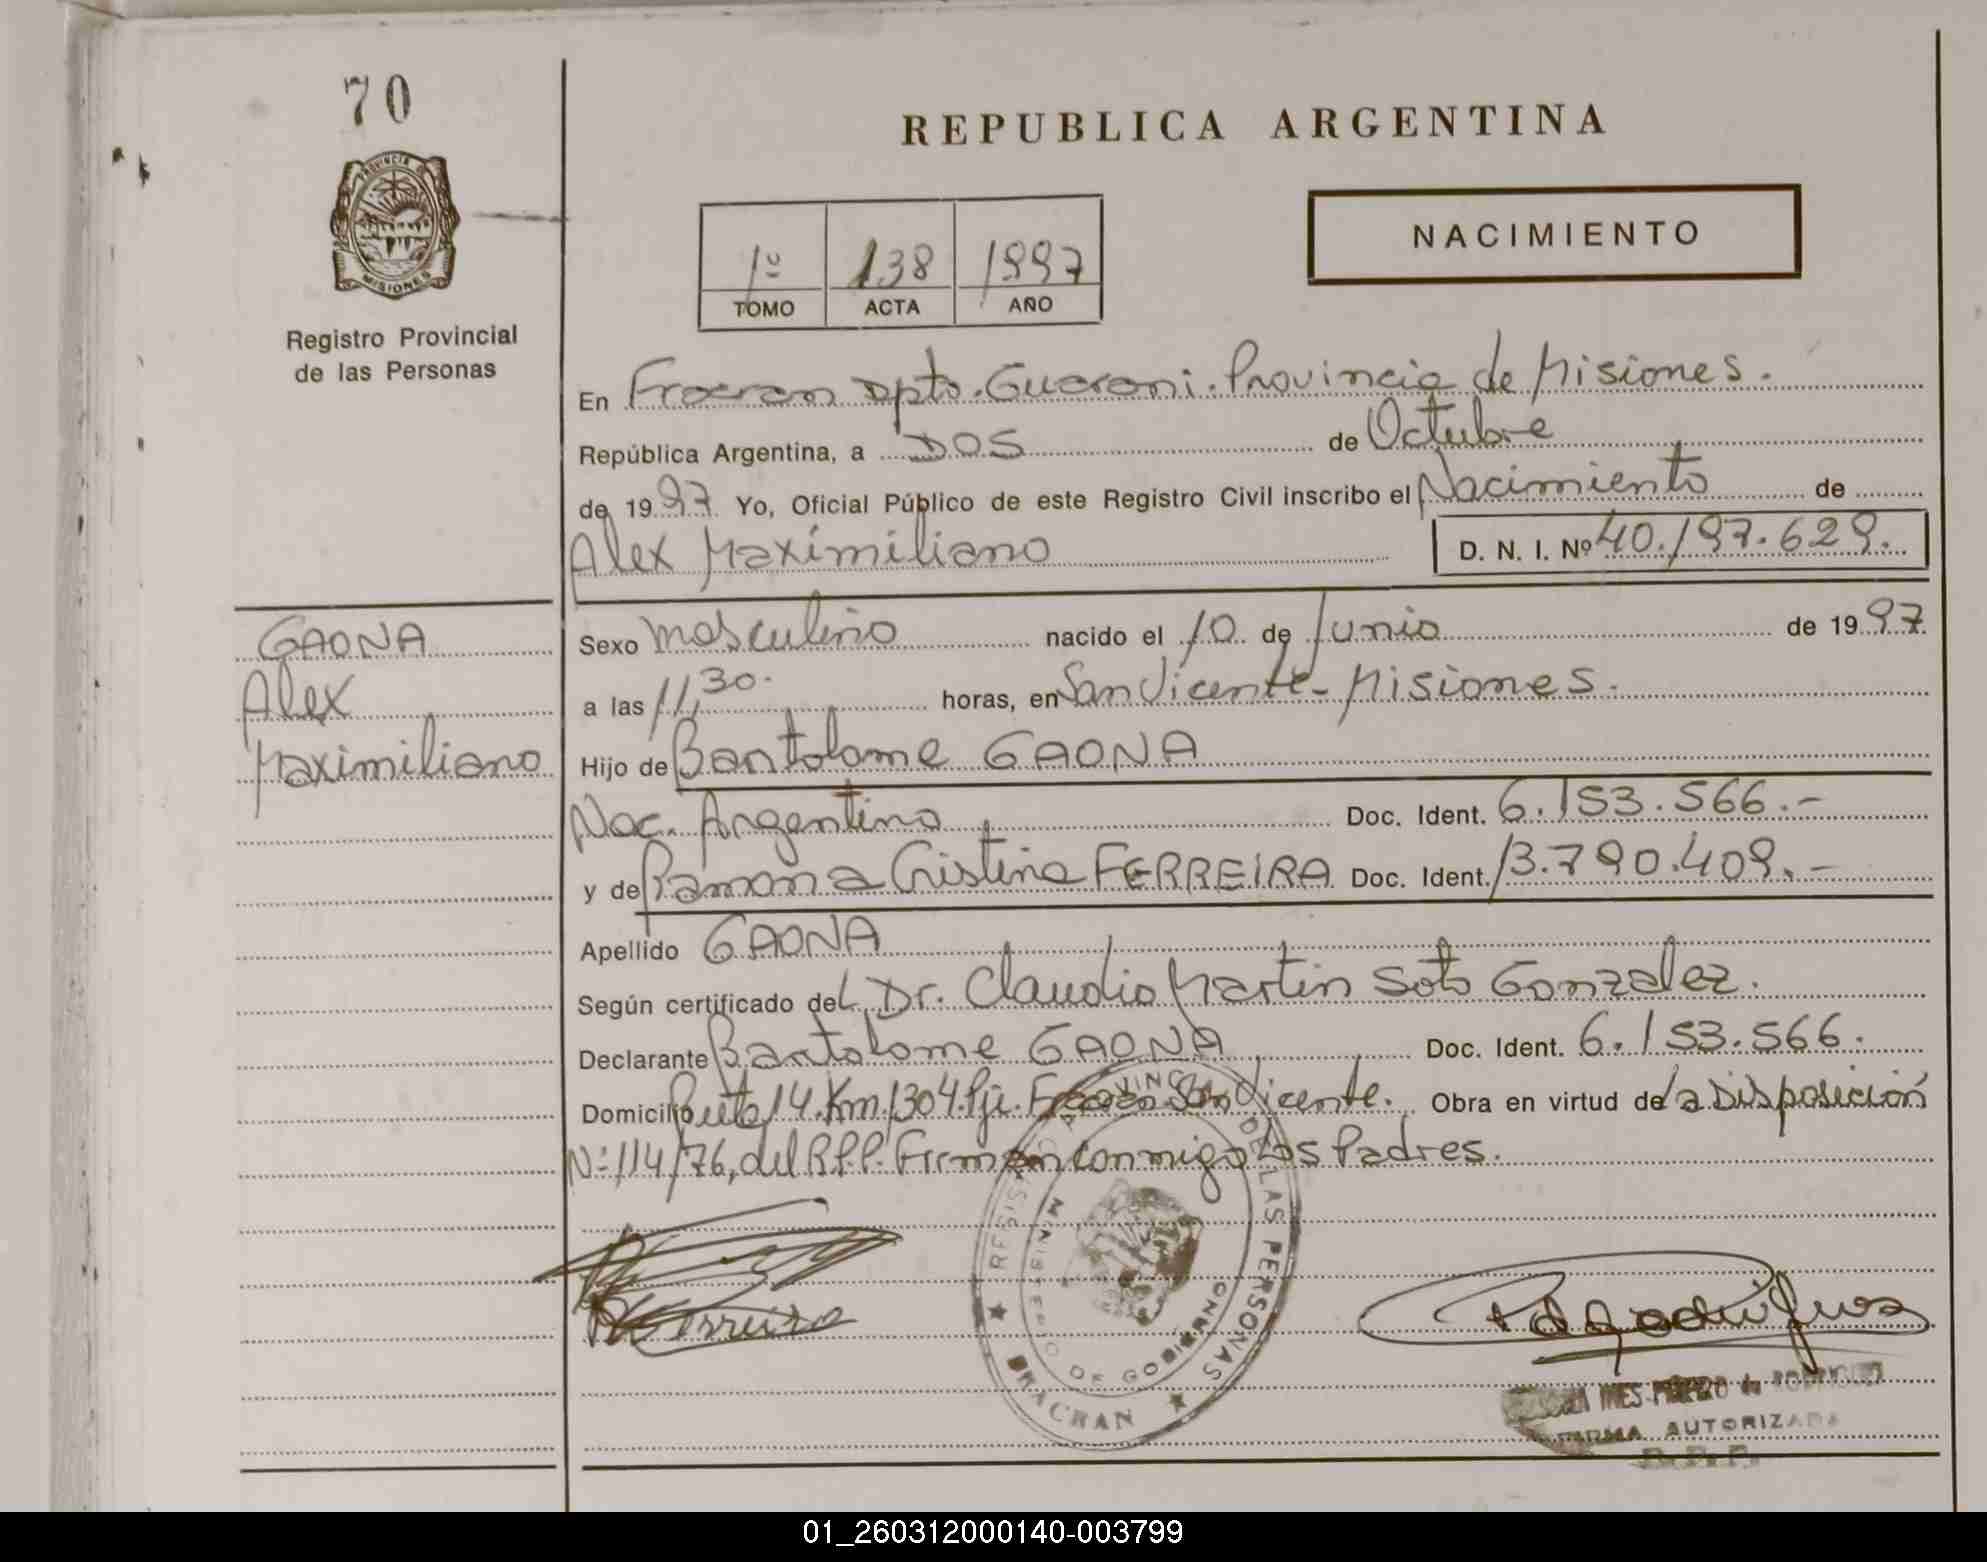 70
PROVINCIA DE
MISIONES
Registro Provincial
de las Personas
REPUBLICA ARGENTINA
NACIMIENTO
1º 138 1997
TOMO ACTA AÑO
En Fracran Dpto. Guarani. Provincia de Misiones.
República Argentina, a DOS de Octubre
de 1997 Yo, Oficial Público de este Registro Civil inscribo el Nacimiento de
Alex Maximiliano D. N. I. Nº 40.197.629.
GAONA
Alex
Maximiliano
Sexo masculino nacido el 10 de Junio de 1997
a las 11,30. horas, en San Vicente - Misiones.
Hijo de Bartolome GAONA
Nac. Argentino Doc. Ident. 6.153.566.-
y de Ramona Cristina FERREIRA Doc. Ident. 13.790.409.-
Apellido GAONA
Según certificado del Dr. Claudio Martin Soto Gonzalez.
Declarante Bartolome GAONA Doc. Ident. 6.153.566.
Domicilio Ruta 14. Km. 1304. Pje. Fracran San Vicente. Obra en virtud de la Disposición
Nº 114/76, del R.P.P. Firman conmigo Los Padres.
REGISTRO PROVINCIAL DE LAS PERSONAS
MINISTERIO DE GOBIERNO
FRACRAN
INES de RODRIGUEZ
FIRMA AUTORIZADA
R.P.P.
01_260312000140-003799